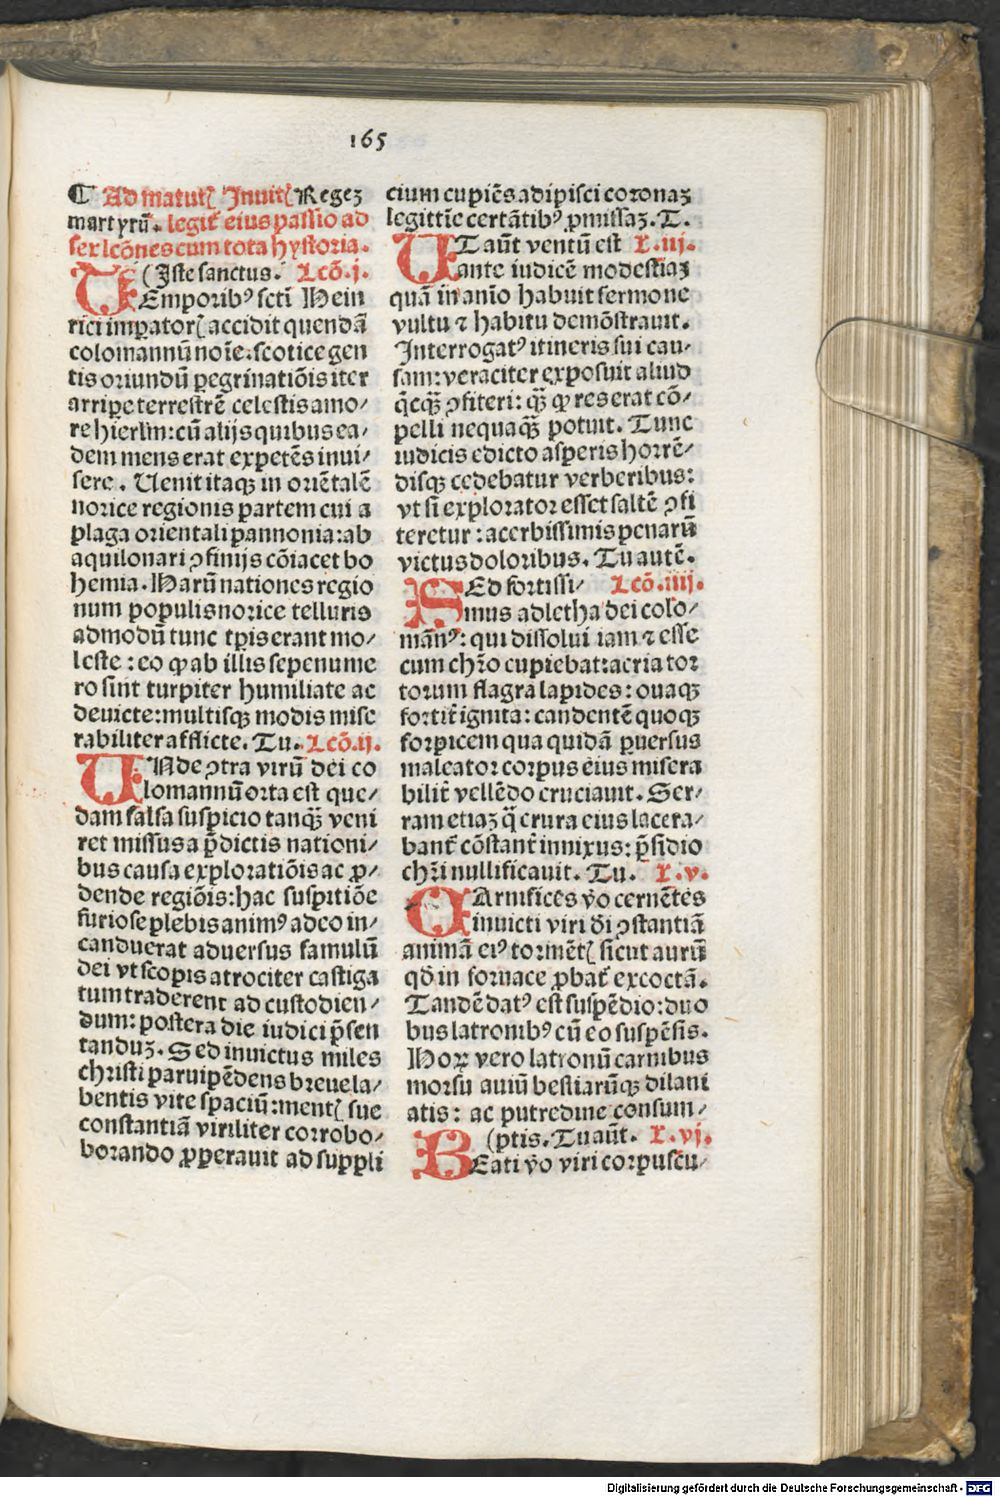 165
¶ Ad matutꝭ Inuitꝭ Regeꝫ
martyrū. legit᷑ eius passio ad
sex lcōnes cum tota hystoria.
(Iste sanctus. Lcō.j.
TEmporibꝰ scti Hein
rici imꝑatorꝭ accidit quendā
colomannū noīe: scotice gen
tis oriundū ꝑegrinatiōis iter
arriꝑe terrestrē celestis amo⸗
re hierlm̄: cū alijs quibus ea⸗
dem mens erat expetēs inui⸗
sere. Uenit itaqꝫ in oriētalē
norice regionis partem cui a
plaga orientali pannonia: ab
aquilonari ꝯfinijs cōiacet bo
hemia. Harū nationes regio
num populis norice telluris
admodū tunc tꝑis erant mo⸗
leste: eo ꝙ ab illis sepenume
ro sint turpiter humiliate ac
deuicte: multisqꝫ modis mise
rabiliter afflicte. Tu. Lcō.ij.
UNde ꝯtra virū dei co
lomannū orta est que⸗
dam falsa suspicio tanqꝫ̄ veni
ret missus a p̄dictis nationi⸗
bus causa exploratiōis ac ꝓ⸗
dende regiōis: hac suspitiōe
furiose plebis animꝰ adeo in⸗
canduerat aduersus famulū
dei vt scopis atrociter castiga
tum traderent ad custodien⸗
dum: postera die iudici p̄sen
tanduꝫ. Sed inuictus miles
christi paruipēdens breue la⸗
bentis vite spaciū: mentꝭ sue
constantiā viriliter corrobo⸗
borando ꝓꝑerauit ad suppli
cium cupiēs adipisci coronaꝫ
legittīe certātibꝰ ꝓmissaꝫ. T.
UT aūt ventū est L.iij.
ante iudicē modestiaꝫ
quā in anīo habuit sermone
vultu ⁊ habitu demōstrauit.
Interrogatꝰ itineris sui cau⸗
sam: veraciter exposuit aliud
q̄cqꝫ̄ ꝯfiteri: qꝫ̄ ꝙ res erat cō⸗
pelli nequaqꝫ̄ potuit. Tunc
iudicis edicto asperis horrē⸗
disqꝫ cedebatur verberibus:
vt si explorator esset saltē ꝯfi
teretur: acerbissimis penarū
victus doloribus. Tu autē.
SEd fortissi⸗ Lcō.iiij.
mus adletha dei colo⸗
mānꝰ: qui dissolui iam ⁊ esse
cum chr̄o cupiebat: acria tor
torum flagra lapides: ouaqꝫ
fortit᷑ ignita: candentē quoqꝫ
forpicem qua quidā ꝑuersus
maleator corpus eius misera
bilit᷑ vellēdo cruciauit. Ser⸗
ram etiaꝫ q̄ crura eius lacera⸗
bant᷑ cōstant᷑ innixus: p̄sidio
chr̄i nullificauit. Tu. L.v.
CArnifices v̄o cernētes
inuicti viri d̄i ꝯstantiā
animā eiꝰ tormētꝭ sicut aurū
qd̄ in fornace ꝓbat᷑ excoctā.
Tandē datꝰ est suspēdio: duo
bus latronibꝰ cū eo suspēsis.
Hoꝝ vero latronū carnibus
morsu auiū bestiarūqꝫ dilani
atis: ac putredine consum⸗
(ptis. Tu aūt. L.vj.
BEati v̄o viri corpuscu⸗
Digitalisierung gefördert durch die Deutsche Forschungsgemeinschaft - DFG